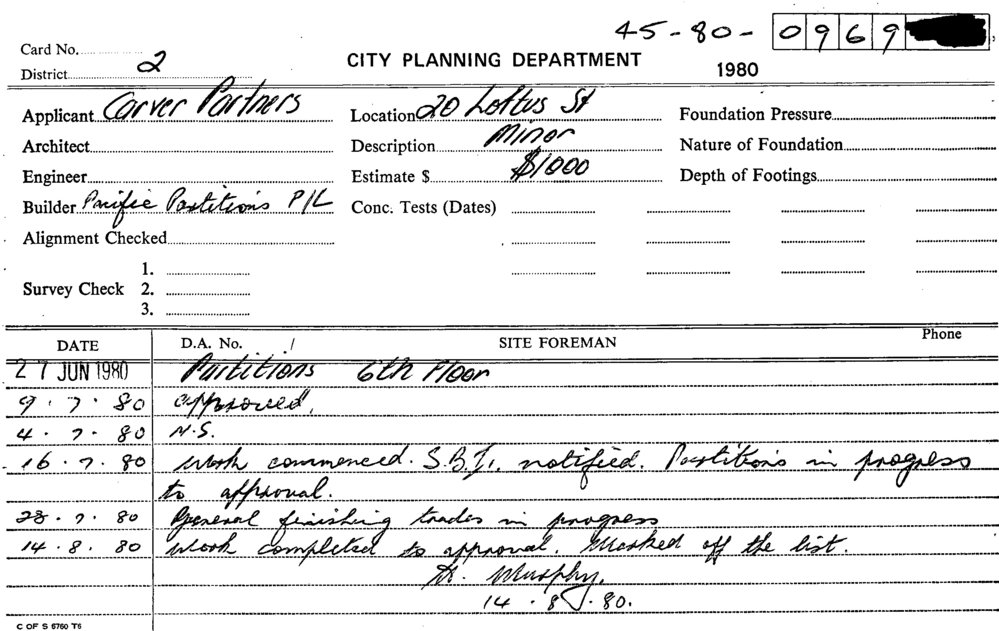 45-80-0969
Card No.
District 2
CITY PLANNING DEPARTMENT
1980
Applicant Carver Partners
Location 20 Loftus St
Foundation Pressure
Architect
Description Minor
Nature of Foundation
Engineer
Estimate $ $1000
Depth of Footings
Builder Pacific Partitions P/L
Conc. Tests (Dates)
Alignment Checked
1.
Survey Check 2.
3.
DATE D.A. No. / SITE FOREMAN Phone
27 JUN 1980 Partitions 6th Floor
9.7.80 approved.
4.7.80 N.S.
16.7.80 Work commenced. S.B.I. notified. Partitions in progress
to approval.
28.7.80 General finishing trades in progress
14.8.80 Work completed to approval. Marked off the list.
Murphy.
14.8.80.
C OF S 6760 T6